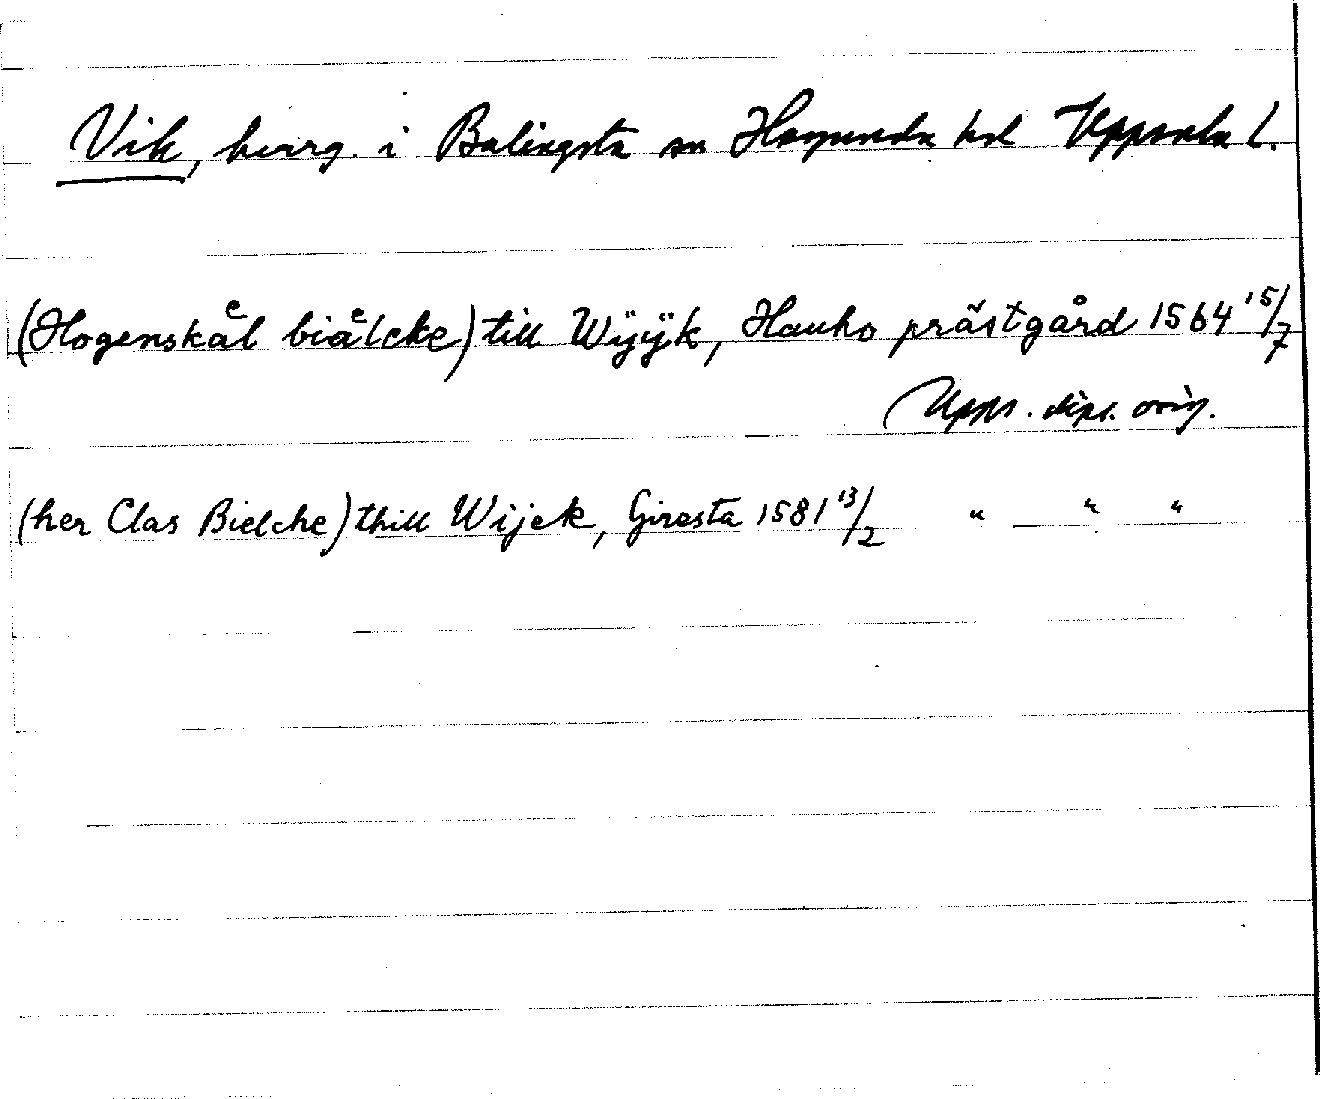 Vik, herrg. i Balingsta sn Hagunda hd Uppsala l.
(Hogenskaͤl biaͤlcke) till Wÿÿk, Hauho prästgård 1564 15/7
Upps. dipl. orig.
(her Clas Bielche) thill Wijck, Giresta 1581 13/2 " — " "